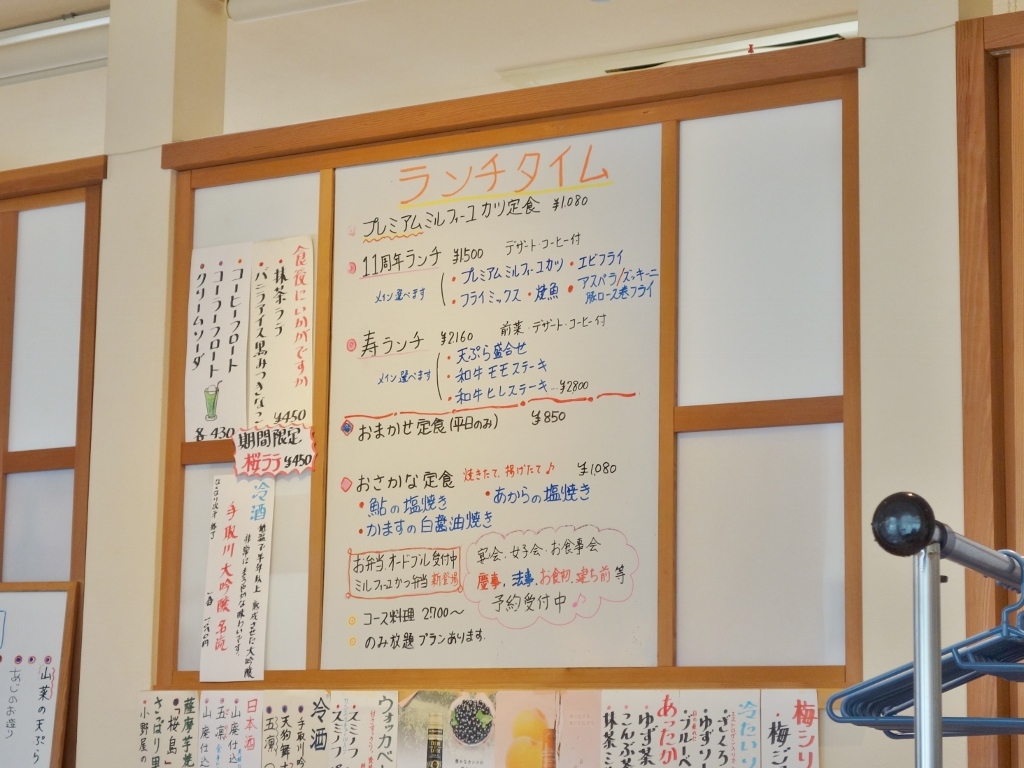 ランチタイム
プレミアムミルフィーユカツ定食 ¥1,080
11周年ランチ ¥1500 デザート・コーヒー付
メイン選べます
・プレミアムミルフィーユカツ ・エビフライ
・フライミックス ・焼魚 ・アスパラ/ズッキーニ
豚ロース巻フライ
寿ランチ ¥2160 前菜・デザート・コーヒー付
メイン選べます
・天ぷら盛合せ
・和牛モモステーキ
・和牛ヒレステーキ…¥2800
おまかせ定食(平日のみ) ¥850
おさかな定食 焼きたて、揚げたて♪ ¥1080
・鮎の塩焼き ・あからの塩焼き
・かますの白醤油焼き
お弁当、オードブル受付中
ミルフィーユかつ弁当 新登場
宴会・女子会・お食事会
慶事、法事、お食初、建ち前 等
予約受付中♪
コース料理 2,700〜
のみ放題プランあります。
食後にいかがですか
・抹茶ラテ
・バニラアイス黒みつきなこ
¥450
・コーヒーフロート
・コーラフロート
・クリームソーダ
各430
期間限定
桜ラテ ¥450
冷酒
手取川 大吟醸 名流
山菜の天ぷら
あじのお造り
梅シリ
梅ジ
冷たいり
・ゆずソ
・ざくろ
・ブルーベ
あったか
ゆず茶
こんぶ茶
抹茶ミ
ウォッカベ
スミノフ
スミノフ
冷酒
・手取川吟
・天狗舞
・五凛
日本酒
山廃仕込
五凛
山廃仕込
薩摩芋焼
・「桜島」
さごぼり里
・小野屋の